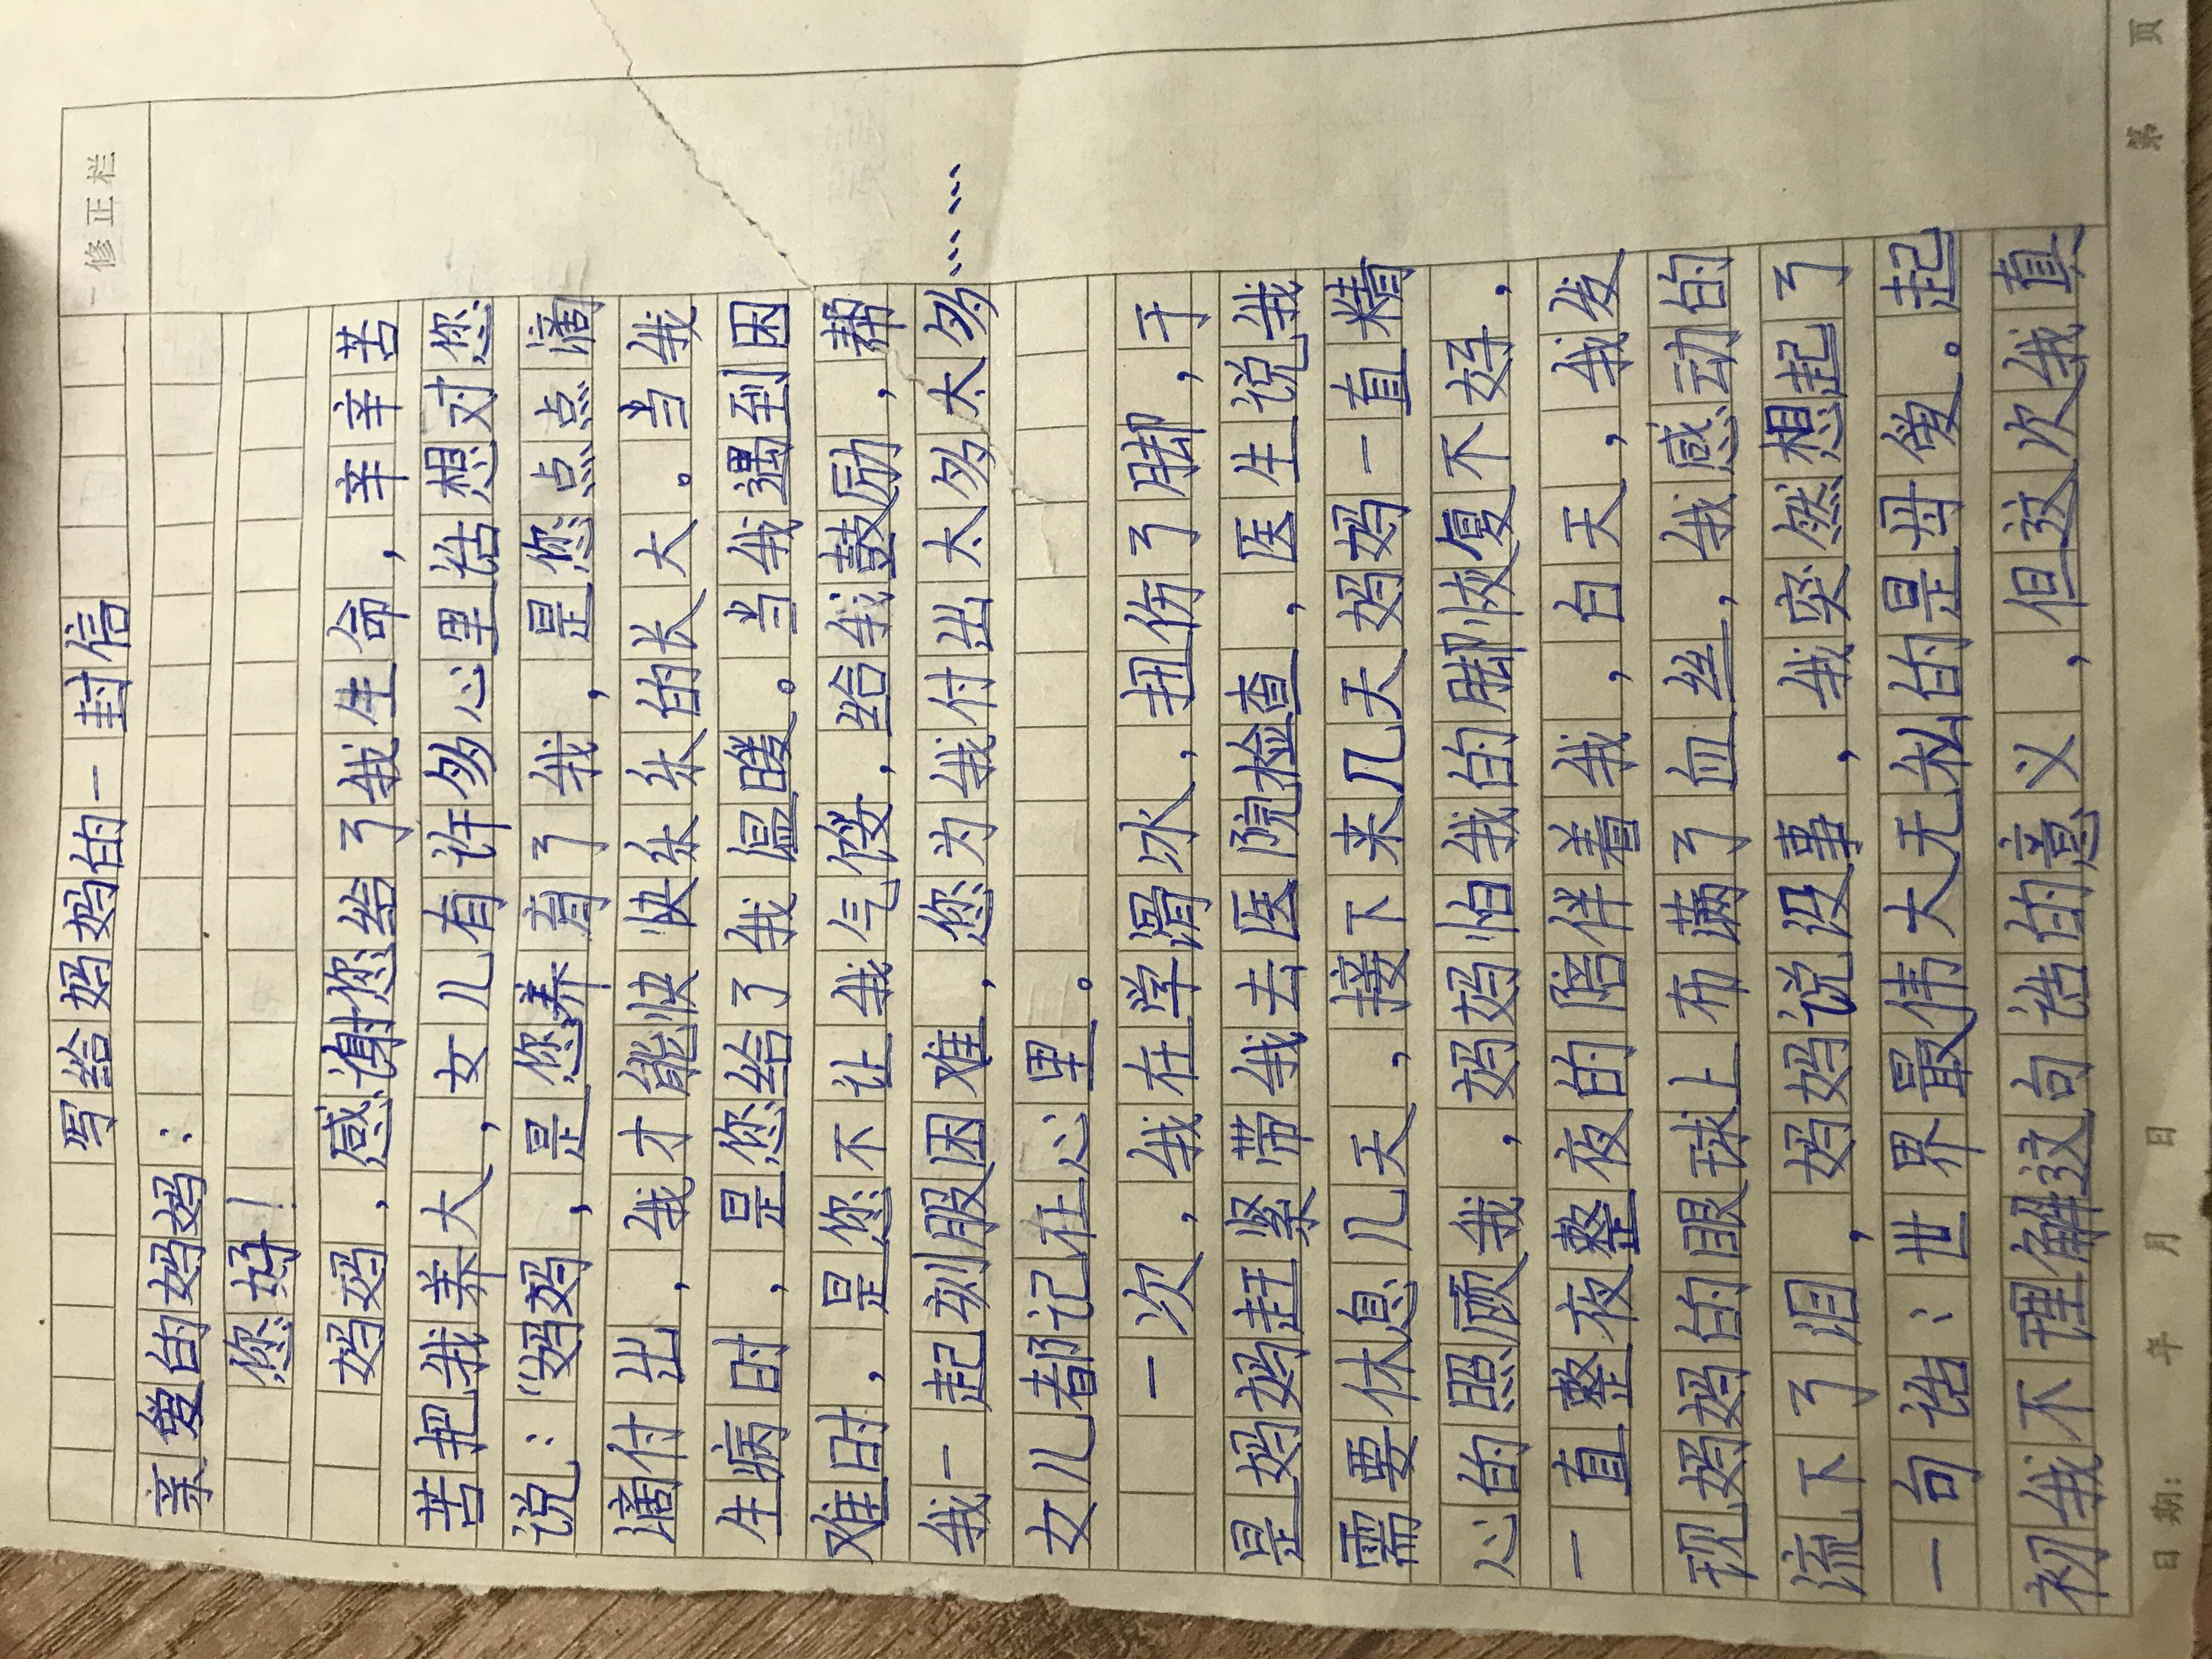 修正栏
写给妈妈的一封信
亲爱的妈妈:
您好!
妈妈,感谢您给了我生命,辛辛苦
苦把我养大,女儿有许多心里话想对您
说:“妈妈,是您养育了我,是您点点滴
滴付出,我才能快快乐乐的长大。当我
生病时,是您给了我温暖。当我遇到困
难时,是您不让我气馁,给我鼓励,帮
我一起刻服困难,您为我付出太多太多……
女儿都记在心里。
一次,我在学滑冰,扭伤了脚,于
是妈妈赶紧带我去医院检查,医生说我
需要休息几天,接下来几天妈妈一直精
心的照顾我,妈妈怕我的脚恢复不好,
一直整夜整夜的陪伴着我,白天,我发
现妈妈的眼球上布满了血丝,我感动的
流下了泪,妈妈说没事,我突然想起了
一句话:世界最伟大无私的是母爱。起
初我不理解这句话的意义,但这次我真
日期: 年 月 日 第 页